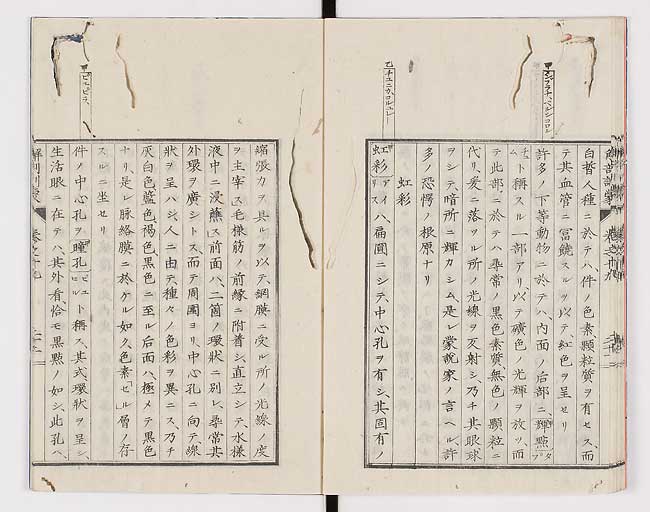 白晳人種ニ於テハ、件ノ色素顆粒質ヲ有セス、而
テ其血管ニ冨饒スルヲ以テ、紅色ヲ呈セリ
許多ノ下等動物ニ於テハ、内面ノ后部ニ、輝點
ト稱スル一部アリ、以テ礦色ノ光輝ヲ放ツ、而
テ此部ニ於テハ尋常ノ黒色素質無色ノ顆粒ニ
代リ、爰ニ落ツル所ノ光線ヲ反射シ、乃チ其眼球
ヲシテ、暗所ニ輝カシム、是レ蒙説家ノ言ヘル、許
多ノ恐愕ノ根原ナリ
虹彩
虹彩アイリスハ、扁圓ニシテ、中心孔ヲ有シ、其固有ノ
縮張力ヲ具ルヲ以テ、綱膜ニ受ル所ノ光線ノ度
ヲ主宰ス、毛様筋ノ前縁ニ附着シ、直立シテ、水様
液中ニ浸蘸ス、前面ハ、二箇ノ環状ニ別レ、尋常其
外環ヲ廣シトス、而テ周圍ヨリ、中心孔ニ向テ、線
狀ヲ呈ハシ、人ニ由テ、種々ノ色彩ヲ異ニス、乃チ
灰白色、籃色、褐色、黒色ニ至ル、后面ハ、極メテ黒色
ナリ、是レ脉絡膜ニ於ケル如ク、色素層ノ存
スルニ坐セリ
件ノ中心孔ヲ瞳孔ピユピルト稱ス、其式環狀ヲ呈シ、
生活眼ニ在テハ、其外看恰モ黒㸃ノ如シ、此孔ハ、
解剖訓蒙 巻之十九